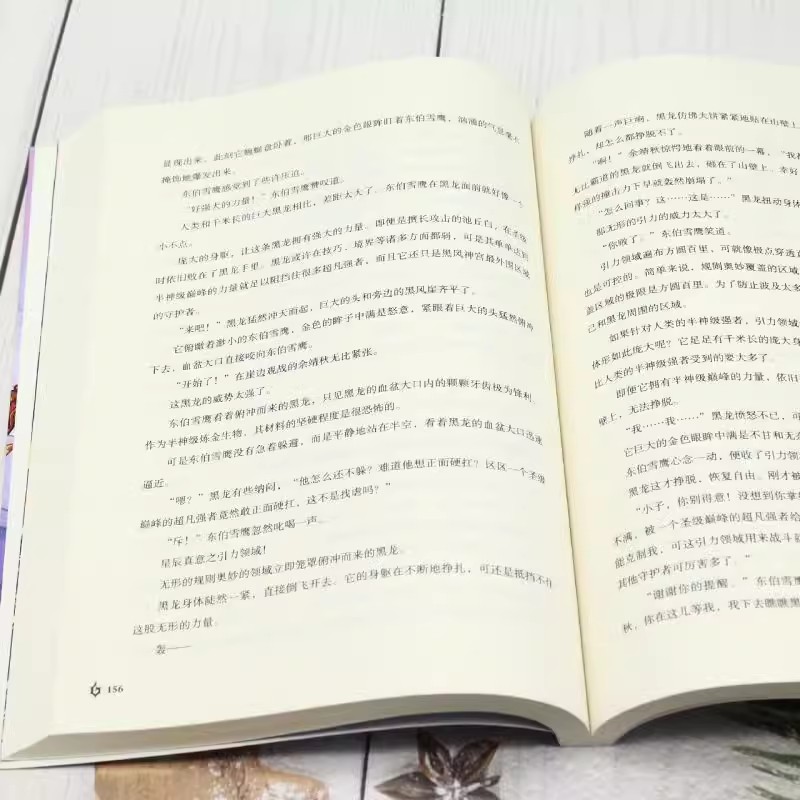 显现出来。此刻它蜿蜒盘卧着，那巨大的金色眼眸盯着东伯雪鹰，汹涌的气息毫不
掩饰地爆发出来。
东伯雪鹰感觉到了些许压迫。
“好强大的力量！”东伯雪鹰赞叹道。
人类和千米长的巨大黑龙相比，差距太大了。东伯雪鹰在黑龙面前就好像一个
小不点。
庞大的身躯，让这条黑龙拥有强大的力量。即便是擅长攻击的池丘白，在圣级
时依旧败在了黑龙手里。黑龙或许在技巧、境界等诸多方面都弱，可是其单单达到
半神级巅峰的力量就足以阻挡住很多超凡强者，而且它还只是黑风神宫最外围区域
的守护者。
“来吧！”黑龙猛然冲天而起，巨大的头和旁边的黑风崖齐平了。
它俯瞰着渺小的东伯雪鹰，金色的眸子中满是怒意，紧跟着巨大的头猛然俯冲
下去，血盆大口直接咬向东伯雪鹰。
“开始了！”在崖边观战的余靖秋无比紧张。
这黑龙的威势太强了。
东伯雪鹰看着俯冲而来的黑龙，只见黑龙的血盆大口内的颗颗牙齿极为锋利。
作为半神级炼金生物，其材料的坚硬程度是很恐怖的。
可是东伯雪鹰没有急着躲避，而是平静地站在半空，看着黑龙的血盆大口迅速
逼近。
“嗯？”黑龙有些纳闷，“他怎么还不躲？难道他想正面硬扛？区区一个圣级
巅峰的超凡强者竟然敢正面硬扛，这不是找虐吗？”
“斥！”东伯雪鹰忽然叱喝一声。
星辰真意之引力领域！
无形的规则奥妙的领域立即笼罩俯冲而来的黑龙。
黑龙身体陡然一紧，直接倒飞开去。它的身躯在不断地挣扎，可还是抵挡不住
这股无形的力量。
轰——
156
随着一声巨响，黑龙仿佛大饼紧紧地贴在山壁上
挣扎，却怎么都挣脱不了。
“啊！”余靖秋惊愕地看着眼前的一幕，“我
无比霸道的黑龙就倒飞出去，砸在了山壁上。幸好
样强的撞击力下早就轰然崩塌了。”
“怎么回事？这……这是……”黑龙扭动身体
那无形的引力的威力太大了。
“你败了。”东伯雪鹰笑道。
引力领域遍布方圆百里，可就像极点穿透
也是可控的。简单来说，规则奥妙覆盖的区域
盖区域的极限是方圆百里。为了防止波及太多
己和黑龙周围的区域。
如果针对人类的半神级强者，引力领域
体形如此庞大呢？它足足有千米长的庞大身
比人类的半神级强者受到的要大多了。
即便它拥有半神级巅峰的力量，依旧
壁上，无法挣脱。
“我……我……”黑龙愤怒不已，可
它巨大的金色眼眸中满是不甘和无奈
东伯雪鹰心念一动，便收了引力领
黑龙这才挣脱，恢复自由。刚才被
“小子，你别得意！没想到你拿
不满，被一个圣级巅峰的超凡强者给
能克制我，可这引力领域用来战斗
其他守护者可厉害多了。”
“谢谢你的提醒。”东伯雪鹰
秋，你在这儿等我，我下去瞧瞧黑